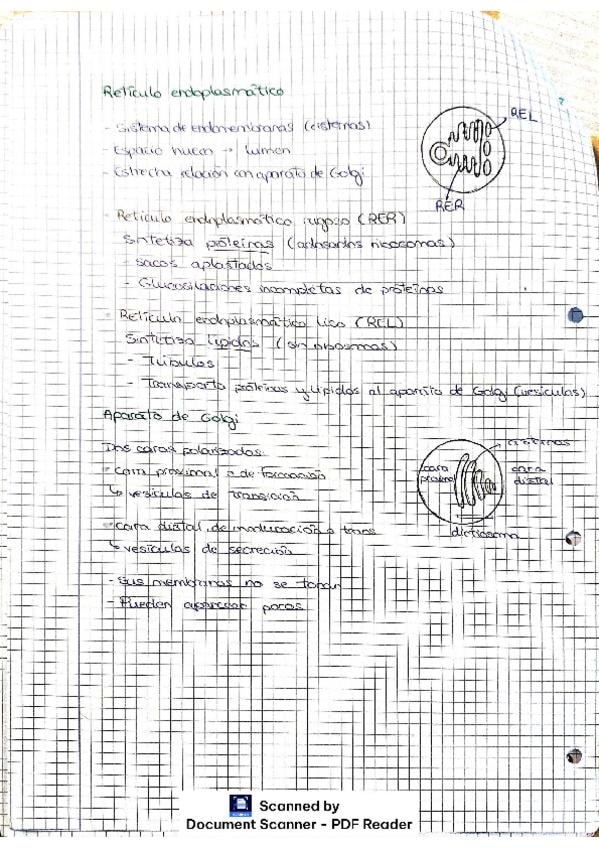 Retículo endoplasmático
REL
- Sistema de endomembranas (cisternas)
- Espacio hueco → lumen
- Estrecha relación con aparato de Golgi
RER
- Retículo endoplasmático rugoso (RER)
Sintetiza proteínas (adosados ribosomas)
- sacos aplastados
- Glucosilaciones incompletas de proteínas
- Retículo endoplasmático liso (REL)
Sintetiza lípidos (sin ribosomas)
- Túbulos
- Transporta proteínas y lípidos al aparato de Golgi (vesículas)
Aparato de Golgi
Dos caras polarizadas:
cisternas
- cara proximal o de formación
cara
cara distal
↳ vesículas de transición
- cara distal, de maduración o trans
dictiosoma
↳ vesículas de secreción
- Sus membranas no se tocan
- Pueden aparecer poros
Scanned by
Document Scanner - PDF Reader